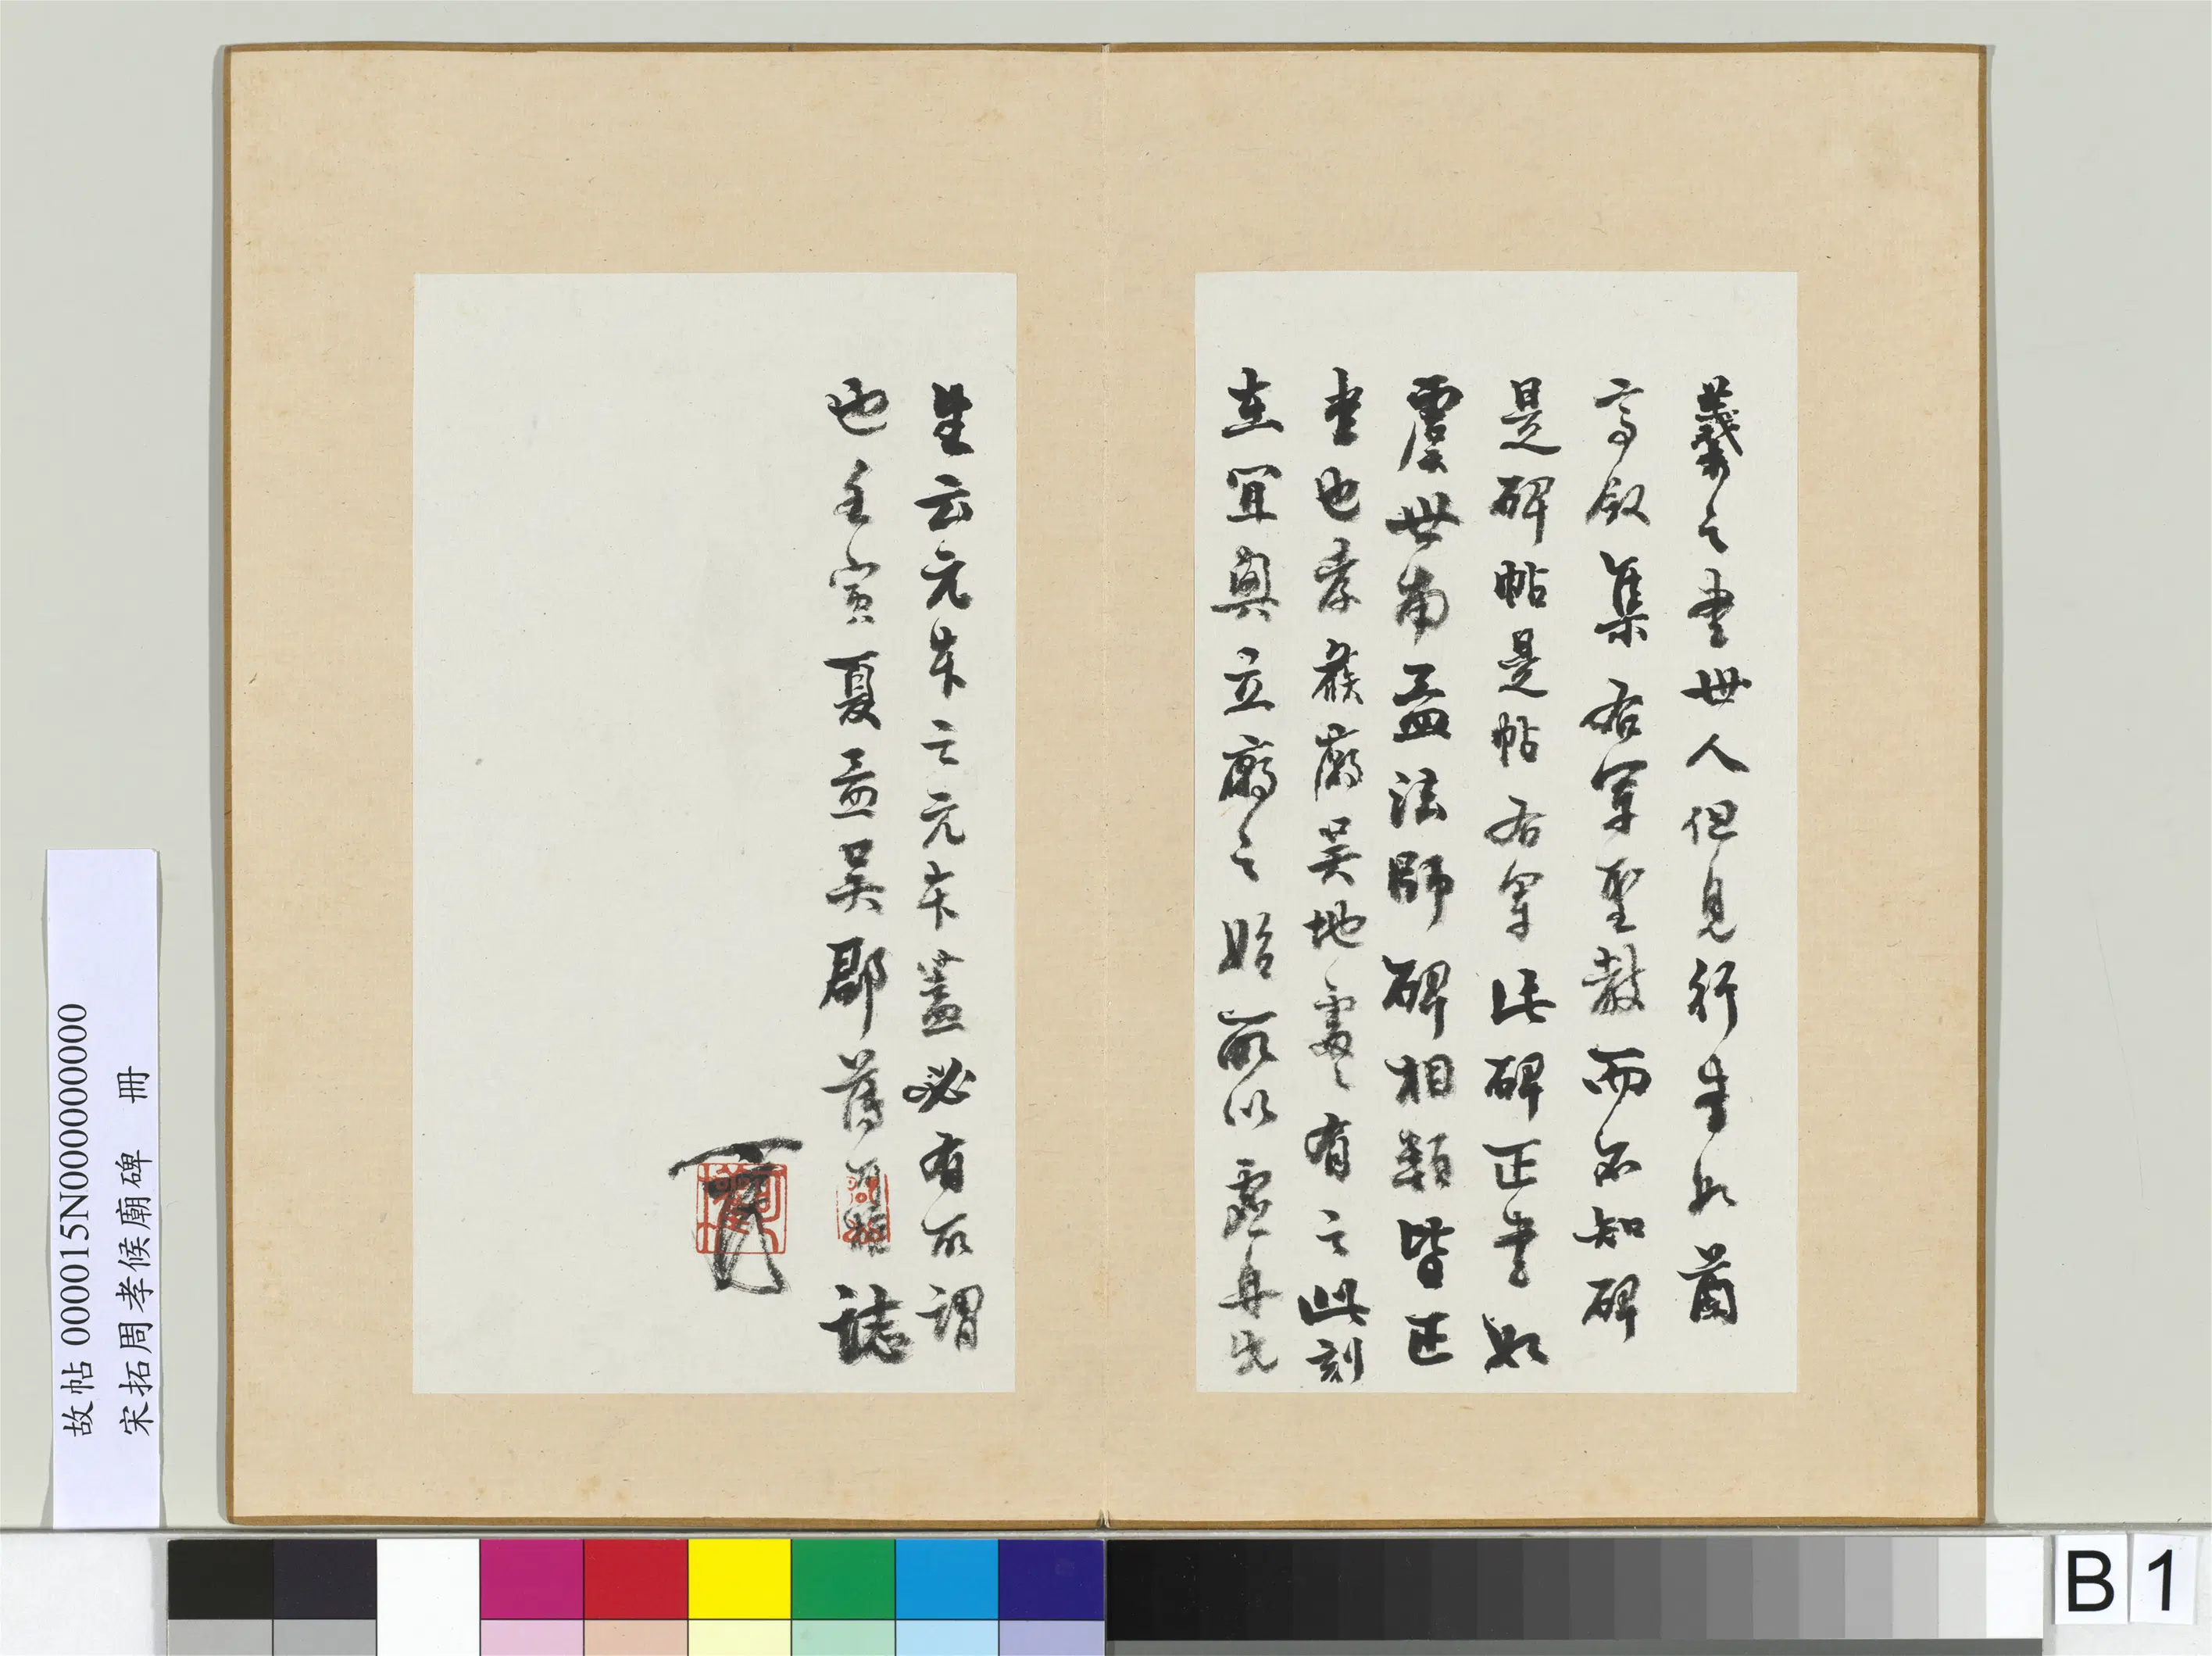 羲之書世人但見行書如蘭
亭敘集右軍聖教而不知碑
是碑帖是帖右軍此碑正書如
虞世南孟法師碑相類皆正
書也孝侯廟吳地處處有之此刻
在宜興立廟之始所以虛舟先
生云元本之元本蓋必有所謂
也壬寅夏孟吳郡舊 誌
故帖 000015N000000000
宋拓周孝候廟碑 冊
B 1